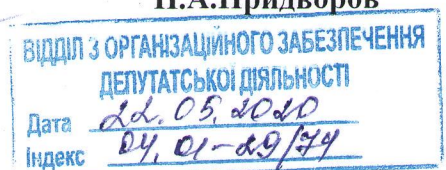 П.А.Придворов
ВІДДІЛ З ОРГАНІЗАЦІЙНОГО ЗАБЕЗПЕЧЕННЯ
ДЕПУТАТСЬКОЇ ДІЯЛЬНОСТІ
Дата 22.05.2020
Індекс 04.01-29/74